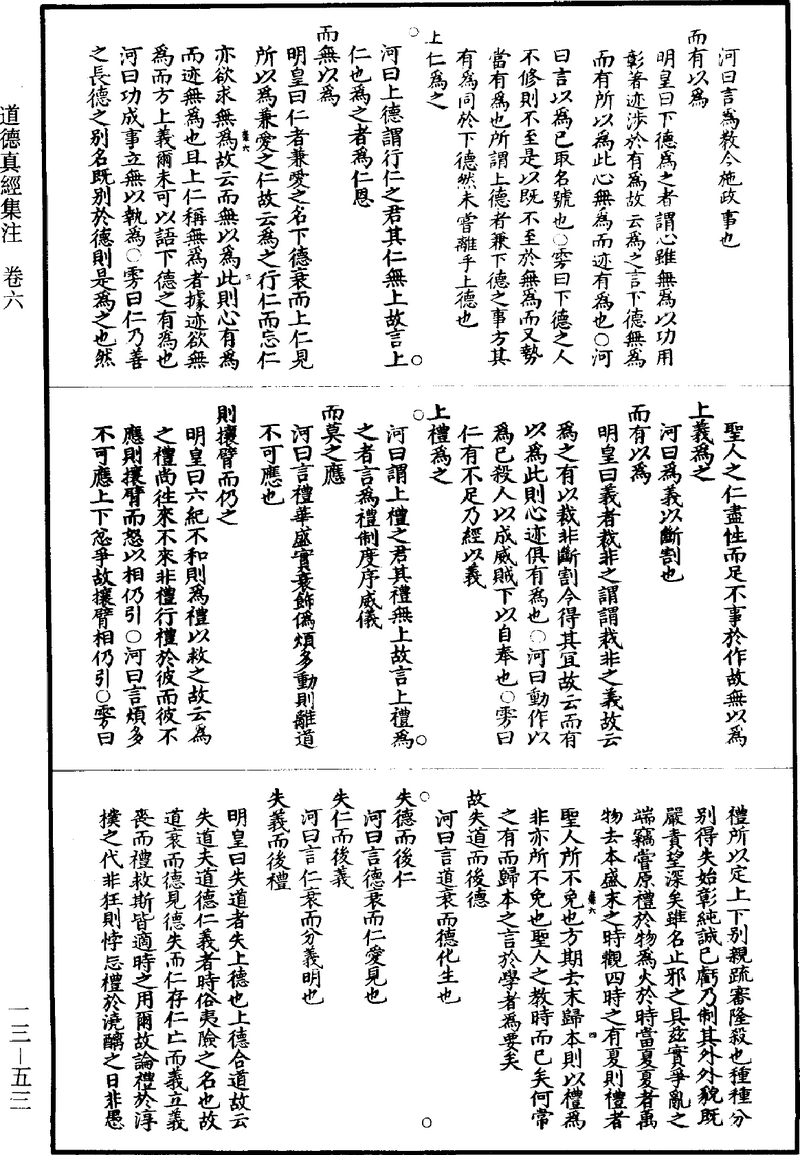 河曰言爲教令施政事也
而有以爲
明皇曰下德爲之者謂心雖無爲以功用
彰著迹涉於有爲故云爲之言下德無爲
而有所以爲此心無爲而迹有爲也○河
曰言以爲已取名號也○雱曰下德之人
不修則不至是以既不至於無爲而又勢
當有爲也所謂上德者兼下德之事方其
有爲同於下德然未嘗離乎上德也
上仁爲之
河曰上德謂行仁之君其仁無上故言上
仁也爲之者爲仁恩
而無以爲
明皇曰仁者兼愛之名下德衰而上仁見
所以爲兼愛之仁故云爲之行仁而忘仁
亦欲求無爲故云而無以爲此則心有爲
而迹無爲也且上仁稱無爲者據迹欲無
爲而方上義爾未可以語下德之有爲也
河曰功成事立無以執爲○雱曰仁乃善
之長德之別名既別於德則是爲之也然
聖人之仁盡性而足不事於作故無以爲
上義爲之
河曰爲義以斷割也
而有以爲
明皇曰義者裁非之謂謂裁非之義故云
爲之有以裁非斷割令得其宜故云而有
以爲此則心迹俱有爲也○河曰動作以
爲已殺人以成威賊下以自奉也○雱曰
仁有不足乃經以義
上禮爲之
河曰謂上禮之君其禮無上故言上禮爲
之者言爲禮制度序威儀
而莫之應
河曰言禮華盛實衰飾僞煩多動則離道
不可應也
則攘臂而仍之
明皇曰六紀不和則爲禮以救之故云爲
之禮尚往來不來非禮行禮於彼而彼不
應則攘臂而怒以相仍引○河曰言煩多
不可應上下忿爭故攘臂相仍引○雱曰
禮所以定上下別親疏審隆殺也種種分
別得失始彰純誠已虧乃制其外外貌既
嚴責望深矣雖名止邪之具茲實爭亂之
端竊嘗原禮於物爲火於時當夏夏者萬
物去本盛末之時觀四時之有夏則禮者
聖人所不免也方期去末歸本則以禮爲
非亦所不免也聖人之教時而已矣何常
之有而歸本之言於學者爲要矣
故失道而後德
河曰言道衰而德化生也
失德而後仁
河曰言德衰而仁愛見也
失仁而後義
河曰言仁衰而分義明也
失義而後禮
明皇曰失道者失上德也上德合道故云
失道夫道德仁義者時俗夷險之名也故
道衰而德見德失而仁存仁亡而義立義
喪而禮救斯皆適時之用爾故論禮於淳
樸之代非狂則悖忘禮於澆醨之日非愚
道德真經集注　卷六
一三—五三